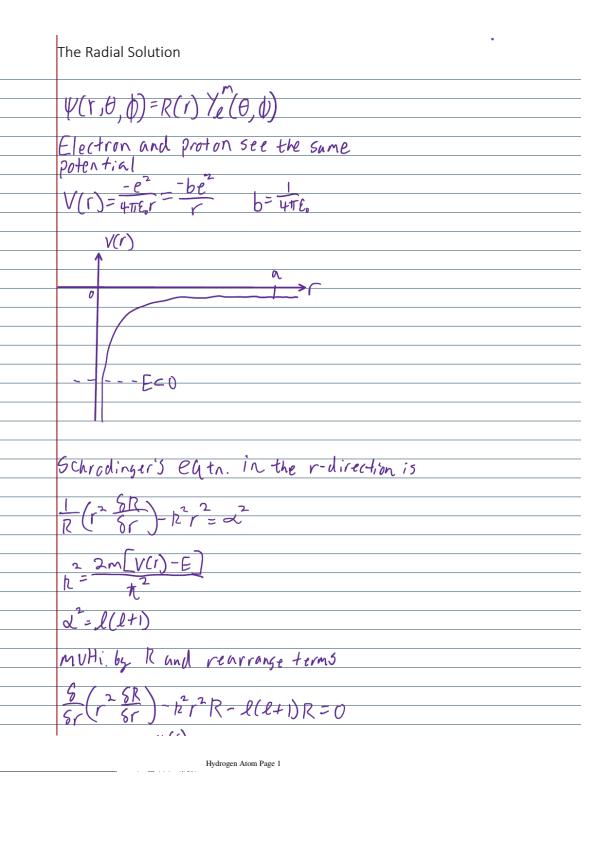 The Radial Solution
Ψ(r,θ,ϕ)=R(r) Yₗᵐ(θ,ϕ)
Electron and proton see the same
potential
V(r)=-e²/4πε₀r = -be²/r b=1/4πε₀
V(r)
a
0 r
E<0
Schrodinger's eqtn. in the r-direction is
1/R (r² δR/δr) - k²r² = α²
k² = 2m[V(r)-E]/ħ²
α² = l(l+1)
multi. by R and rearrange terms
δ/δr (r² δR/δr) - k²r²R - l(l+1)R = 0
Hydrogen Atom Page 1